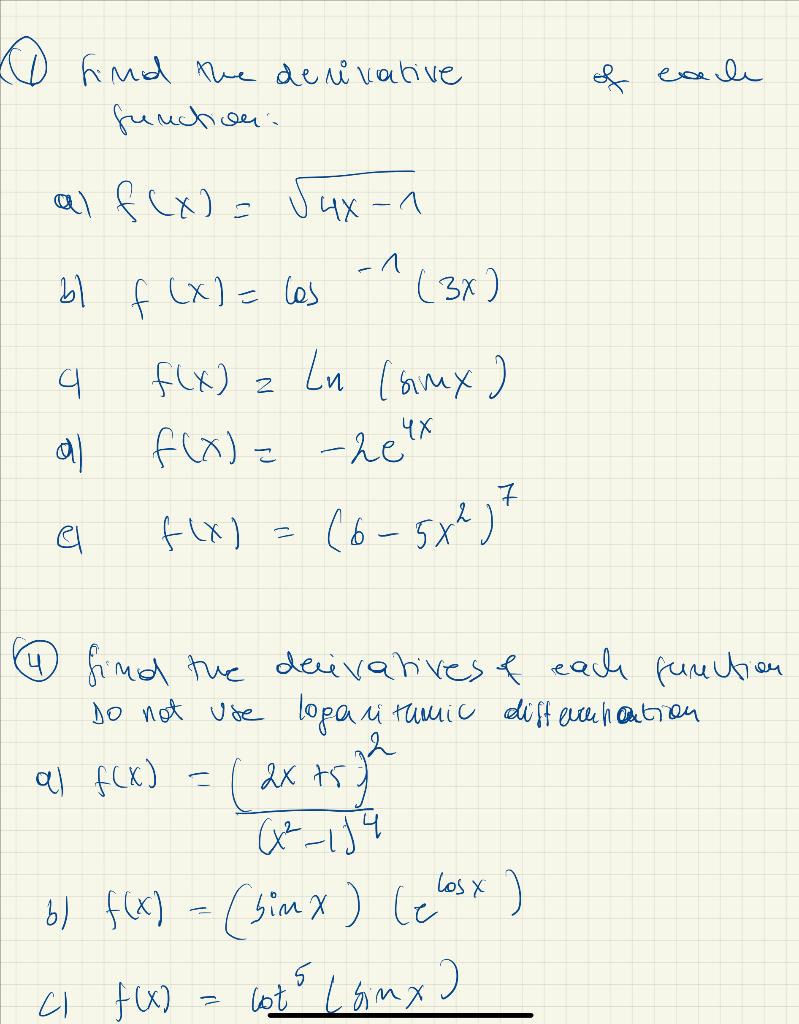 ① Find the derivative of each
function:
a) f(x) = √4x-1
b) f(x) = cos ⁻¹ (3x)
c) f(x) = Ln (sinx)
d) f(x) = -2e⁴ˣ
e) f(x) = (6 - 5x²)⁷
④ find the derivatives of each function
Do not use logaritumic differentiation
a) f(x) = (2x +5)²
(x²-1)⁴
b) f(x) = (sin x) (e^cos x)
c) f(x) = cot⁵ (sinx)